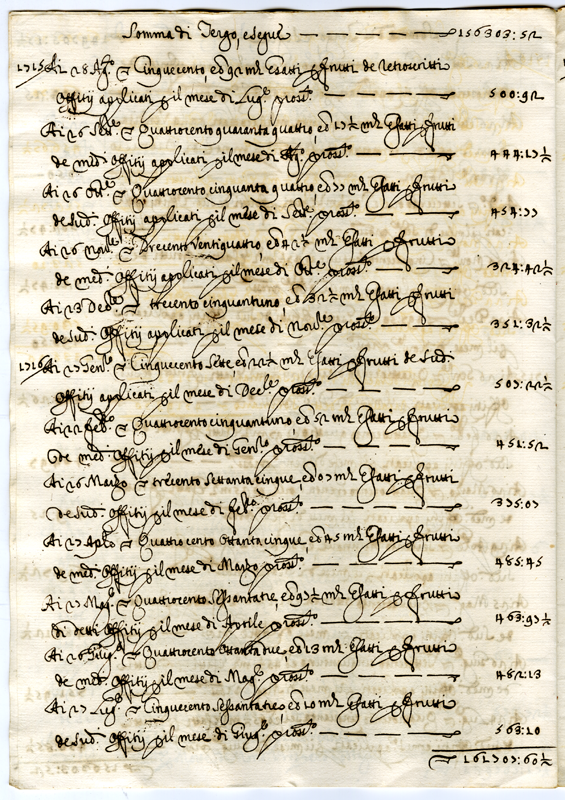 Somma di Tergo, e segue — — — — — 156303:52
1715 Ai 28 Agº = Cinquecento, e d 92 mta Esatti p frutti de retroscritti
Offitij applicati p il mese di Lugº prossº — — — — 500:92
Ai 26 Setre = Quattrocento quaranta quattro, e d 17½ mta Esatti p frutti
de medi Offitij applicati p il mese di Agº prossº — — — 444:17½
Ai 26 Ottre = Quattrocento cinquanta quattro e d 77 mta Esatti p frutti
de Sudi Offitij applicati p il mese di Setre prossº — — — 454:77
Ai 26 Novre = Trecento ventiquattro, e d 42½ mta Esatti p frutti
de medi Offitij applicati p il mese di Ottre prossº — — — 324:42½
Ai 23 Decre = trecento cinquantuno, e d 32½ mta Esatti p frutti
de Sudi Offitij applicati p il mese di Novre prossº — — — 351:32½
1716 Ai 27 Genrº = Cinquecento Sette, e d 22½ mta Esatti p frutti de Sudi
Offitij applicati p il mese di Decre prossº — — — — 507:22½
Ai 22 febº = Quattrocento cinquantuno, e d 52 mta Esatti p frutti
de medi Offitij p il mese di Genrº prossº — — — — 451:52
Ai 26 Marzo = trecento Settanta cinque, e d 07 mta Esatti p frutti
de Sudi Offitij p il mese di febrº prossº — — — — 375:07
Ai 27 Aprle = Quattro cento Ottanta cinque, e d 45 mta Esatti p frutti
de medi Offitij p il mese di Marzo prossº — — — — 485:45
Ai 27 Magº = Quattrocento Sessantatre, e d 97½ mta Esatti p frutti
di detti Offitij p il mese di Aprile prossº — — — — 463:97½
Ai 26 Giugº = Quattrocento Ottantadue, e d 13 mta Esatti p frutti
de medi Offitij p il mese di Magº prossº — — — — 482:13
Ai 27 Lugº = Cinquecento Sessantatre, e d 10 mta Esatti p frutti
de Sudi Offitij p il mese di Giugº prossº — — — — 563:10
= 161707:60½